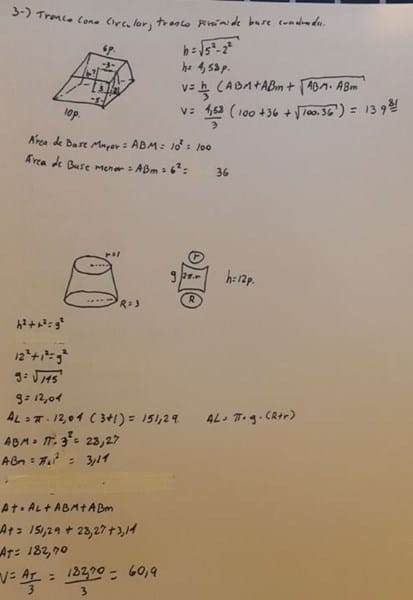 3-) Tronco Cono Circular, tronco Pirámide base cuadrada.
6p.
h = √5²-2²
h = 4,58p.
V = h/3 (ABM+ABm+√ABM.ABm)
V = 4,58/3 (100+36+√100.36) = 139
3
5
10p.
Área de Base Mayor = ABM = 10² = 100
Área de Base menor = ABm = 6² = 36
r=1
R=3
r
g
2π.r
R
h=12p.
h²+r²=g²
12²+1²=g²
g=√145
g=12,04
AL = π . 12,04 (3+1) = 151,29
AL = π.g.(R+r)
ABM = π.3² = 28,27
ABm = π.1² = 3,14
At = AL+ABM+ABm
At = 151,29+28,27+3,14
At = 182,70
V = At/3 = 182,70/3 = 60,9